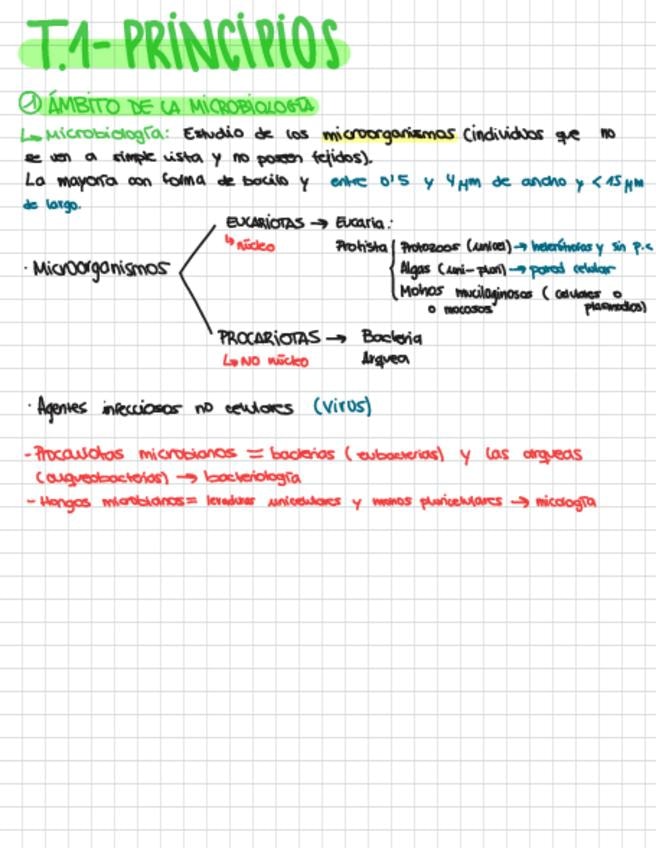 T.1- PRINCIPIOS
① ÁMBITO DE LA MICROBIOLOGÍA
↳ Microbiología: Estudio de los microorganismos (individuos que no
se ven a simple vista y no poseen tejidos).
La mayoría con forma de bacilo y entre 0'5 y 4 μm de ancho y < 15 μm
de largo.
EUCARIOTAS → Eucaria:
↳ núcleo
Protista
Protozoos (unicel) → heterótrofos y sin p.c
Algas (uni-pluri) → pared celular
Mohos mucilaginosos ( celulares o
o mocosos plasmodios)
· Microorganismos
PROCARIOTAS → Bacteria
↳ NO núcleo Arquea
· Agentes infecciosos no celulares (virus)
- Procariotas microbianos = bacterias ( eubacterias) y las arqueas
(arqueobacterias) → bacteriología
- Hongos microbianos = levaduras unicelulares y pluricelulares → micología